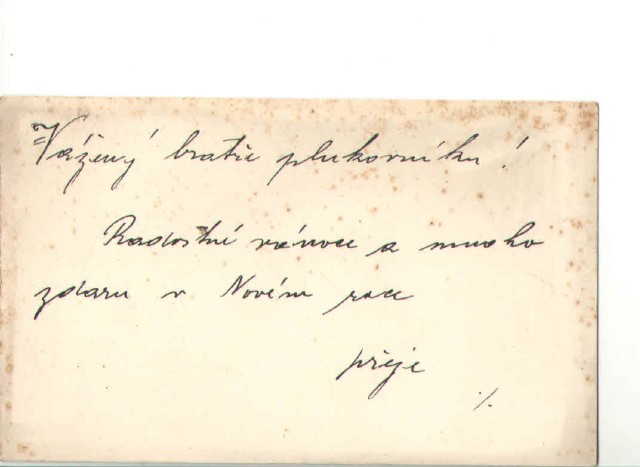 Vážený bratře plukovníku!
Radostné vánoce a mnoho
zdaru v Novém roce
přeje
./.